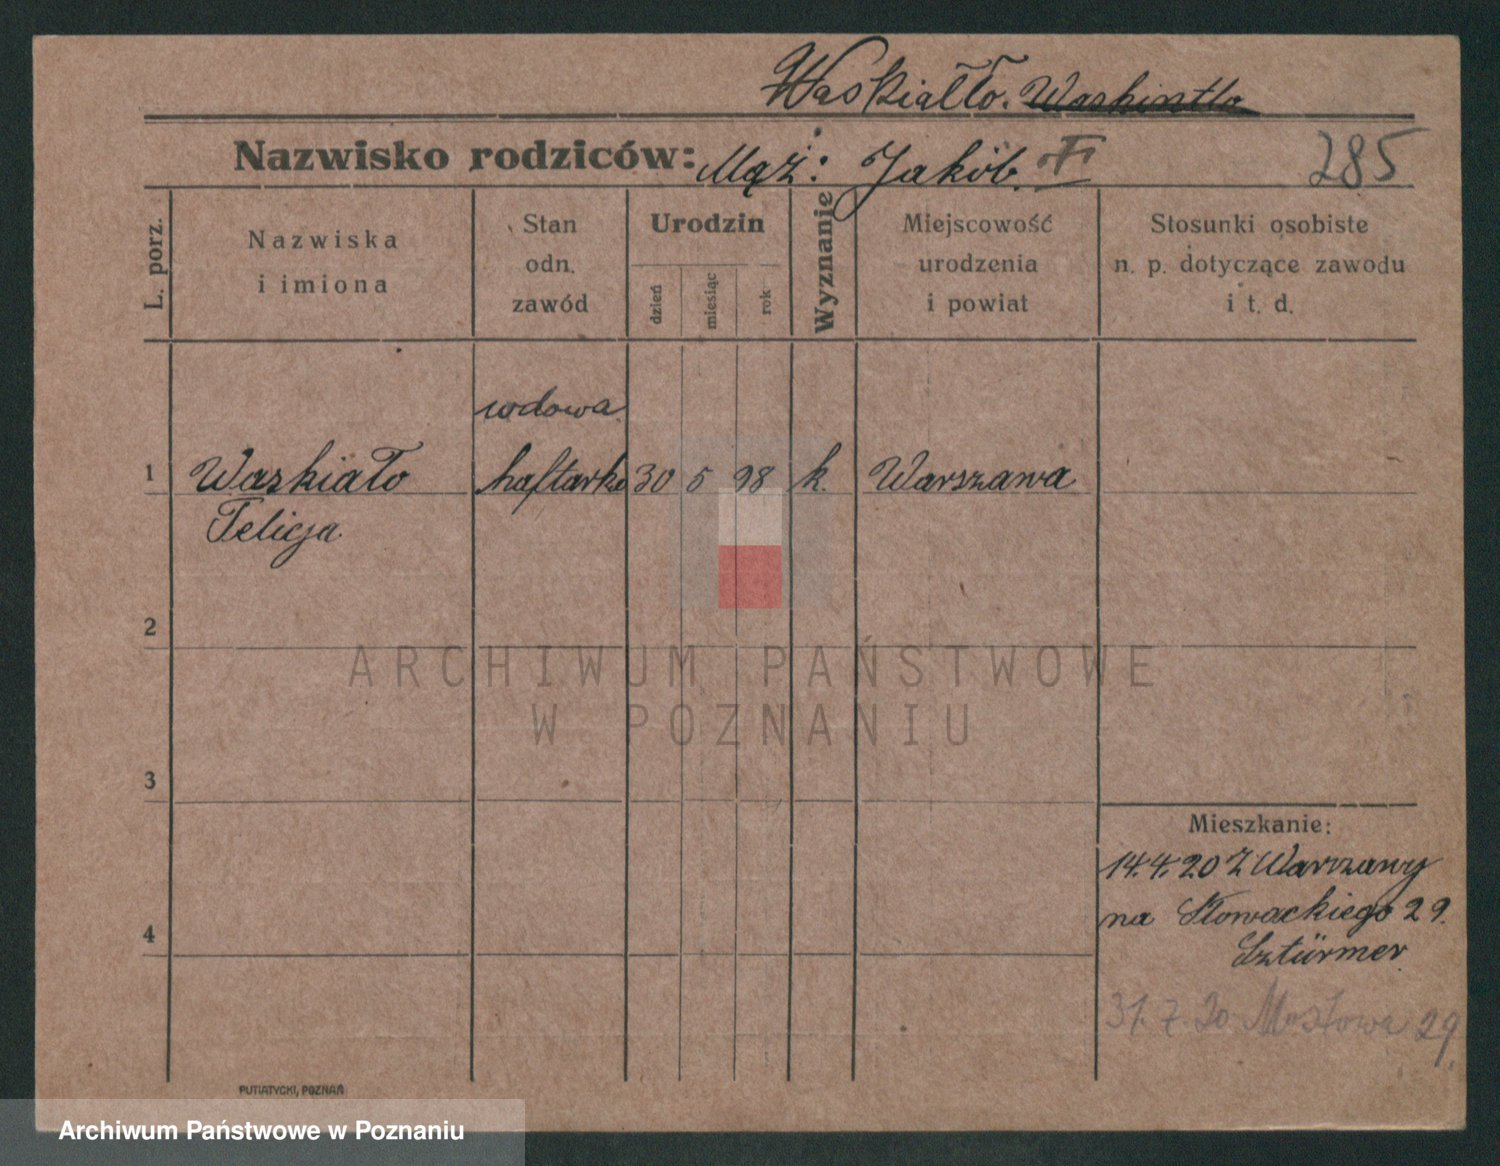 Waskiałło. Waskintło
Nazwisko rodziców: Mąż: Jakób. 285
L. porz.
Nazwiska
i imiona
Stan
odn.
zawód
Urodzin
dzień
miesiąc
rok
Wyznanie
Miejscowość
urodzenia
i powiat
Stosunki osobiste
n. p. dotyczące zawodu
i t. d.
wdowa
1 Waskiało haftarka 30 5 98 k. Warszawa
Felicja
2
3
4
Mieszkanie:
14.4.20 Z Warszawy
na Słowackiego 29.
Sztürmer
31.7.20. Mostowa 29.
PUTIATYCKI, POZNAŃ
ARCHIWUM PAŃSTWOWE
W POZNANIU
Archiwum Państwowe w Poznaniu